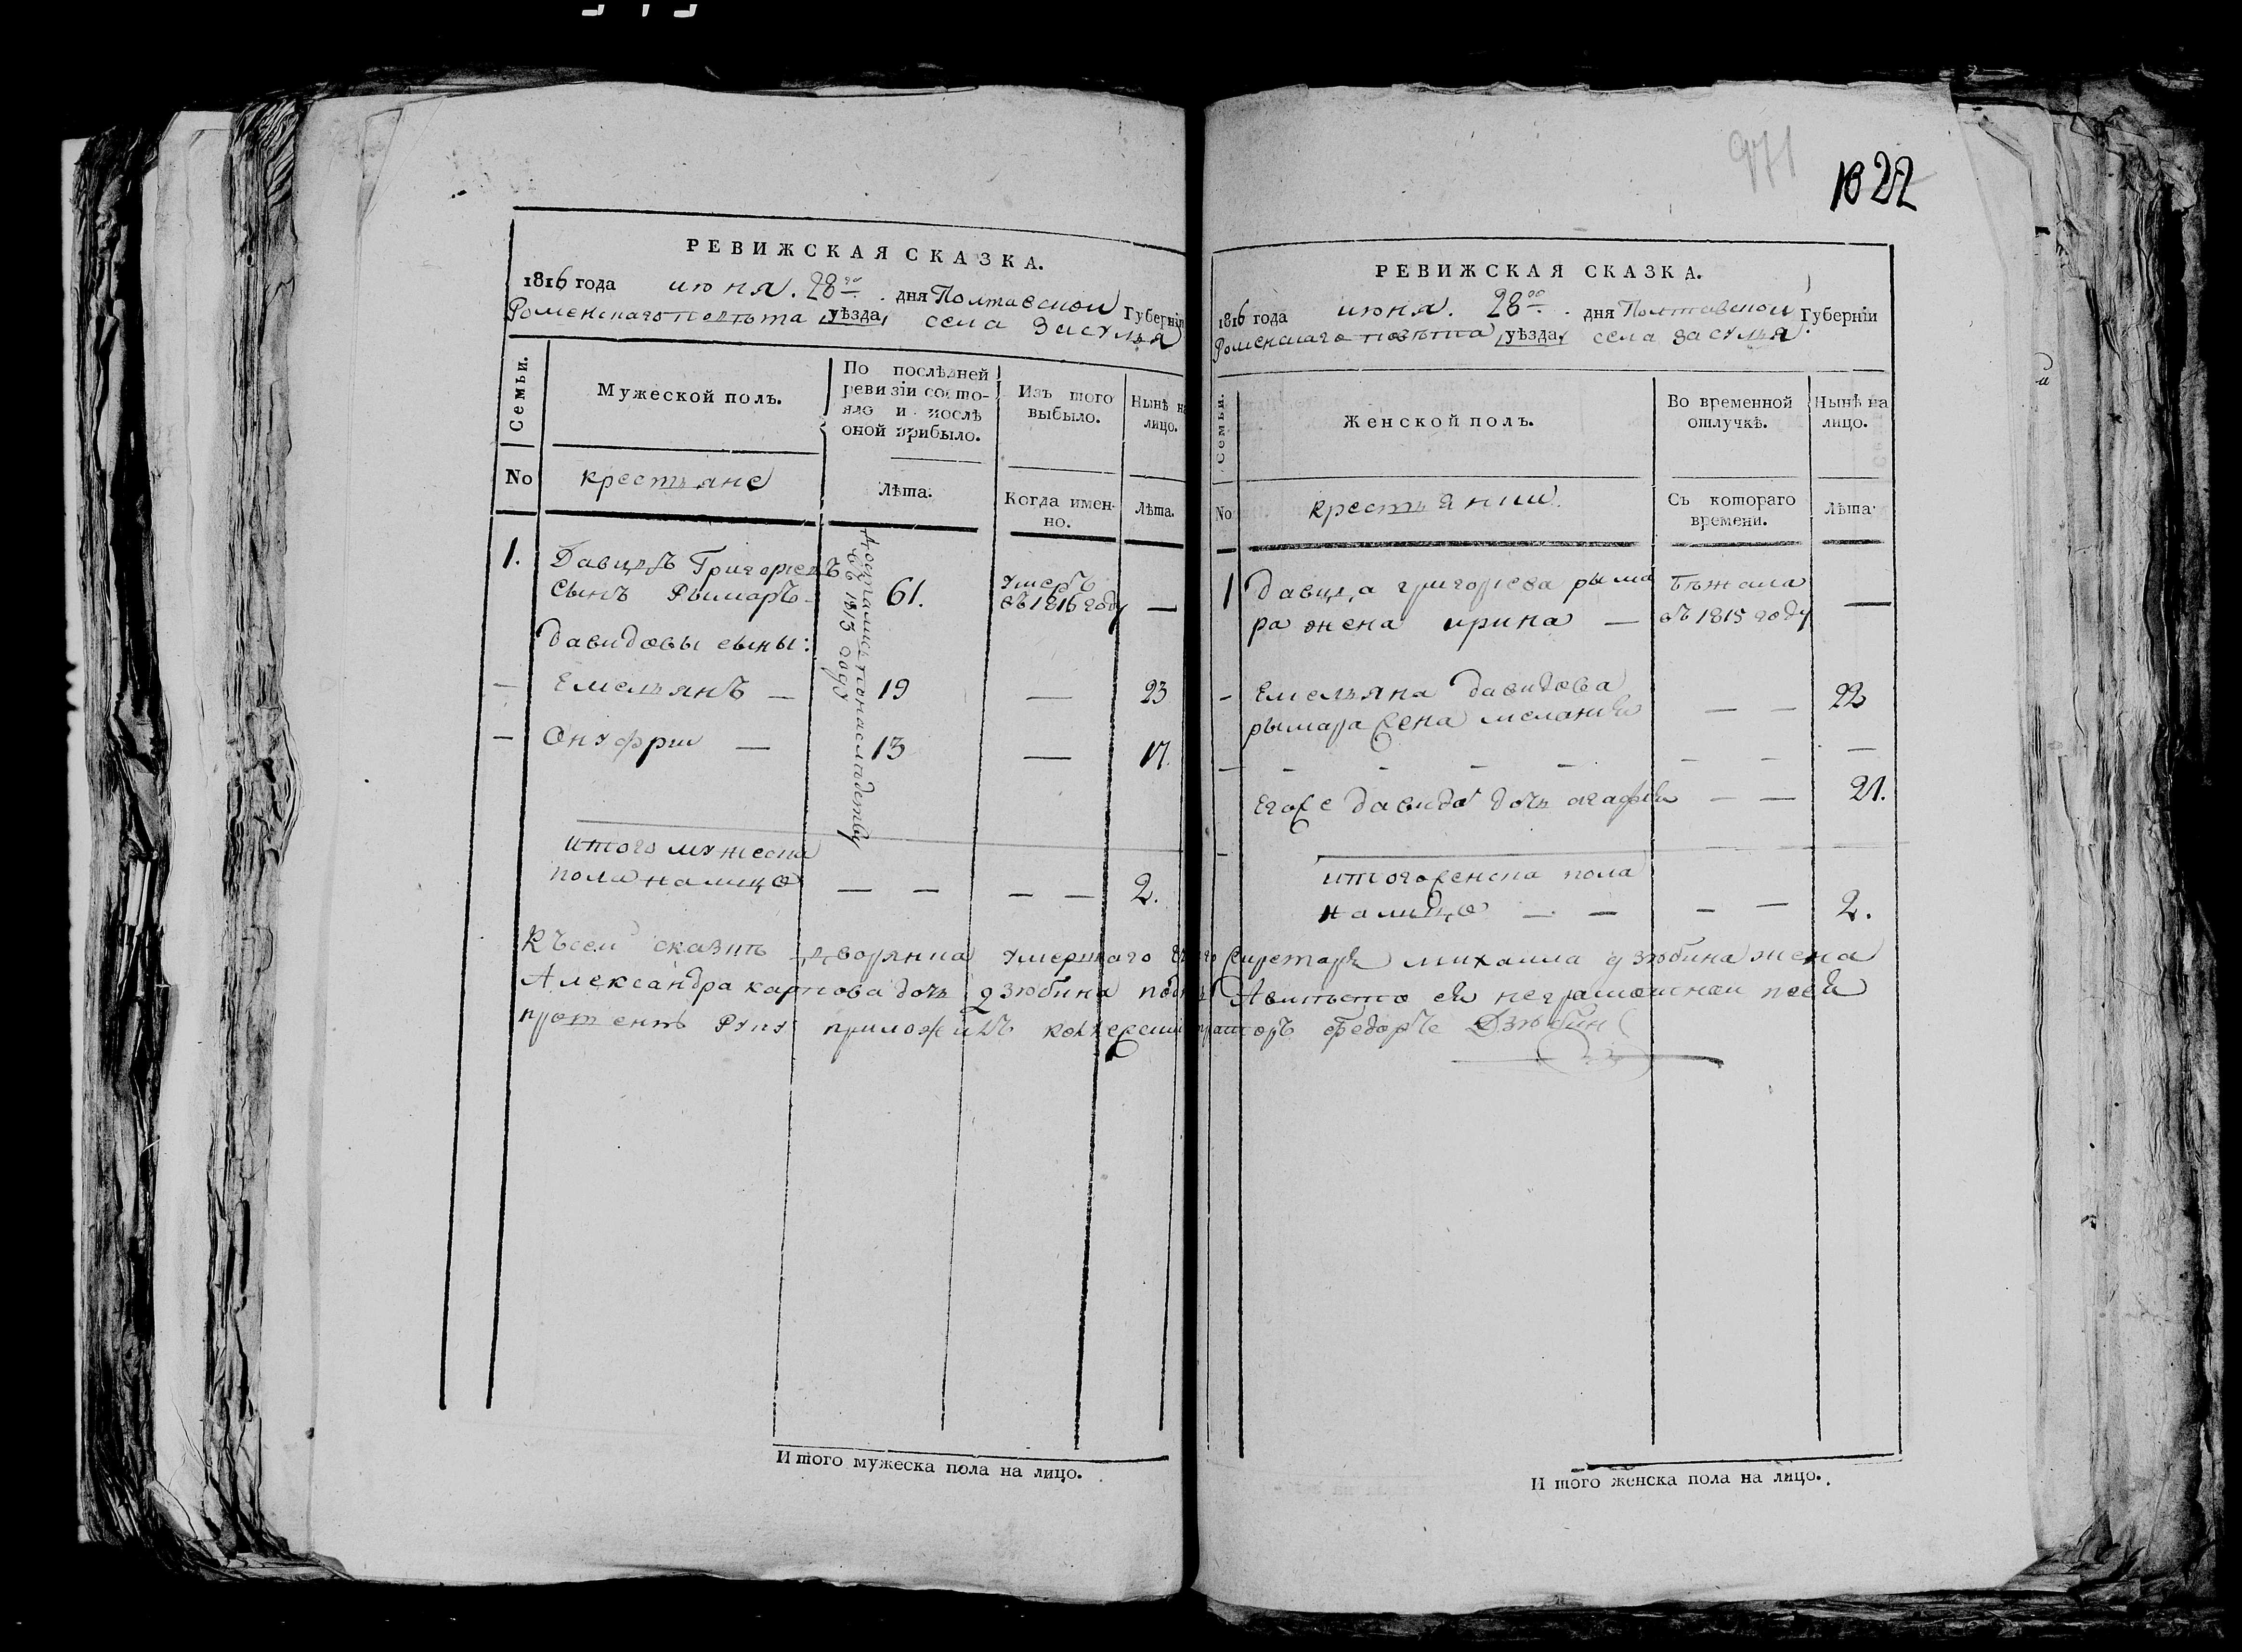 971
1022
РЕВИЖСКАЯ СКАЗКА.
1816 года июня. 28го дня Полтавской Губерніи
Роменского повѣта уѣзда, села Засулья
Семьи.
Мужеской полъ.
По послѣдней ревизіи состо-
яло и послѣ оной прибыло.
Изъ того выбыло.
Нынѣ на лицо.
No
крестьяне
Лѣта.
Когда имен-
но.
Лѣта.
Достались по наследству
въ 1813 году
1. Давидъ Григорьевъ
сынъ Рымаръ — 61. умеръ
въ 1816 году —
Давидовы сыны:
— Емельянъ — 19 — 23
— Онуфрий — 13 — 17.
итого мужеска
пола налицо — — — — 2.
РЕВИЖСКАЯ СКАЗКА.
1816 года июня. 28го дня Полтавской Губерніи
Роменского повѣта уѣзда, села Засулья.
Семьи.
Женской полъ.
Во временной отлучкѣ.
Нынѣ на лицо.
No
крестьянки
Съ котораго времени.
Лѣта.
1 Давида григорьева рыма
ра жена ирина — бѣжала
въ 1815 году —
- Емельяна Давидова
рымара жена мелания — — 22
Егоже Давида дочь агафия — — 21.
итого женска пола
налицо — — — — 2.
Къ сей сказкѣ дворянина умершаго секретаря михаила дзюбина жена
Александра карпова дочь дзюбина
руку приложилъ федоръ Дзюбин
Итого мужеска пола на лицо.
Итого женска пола на лицо.